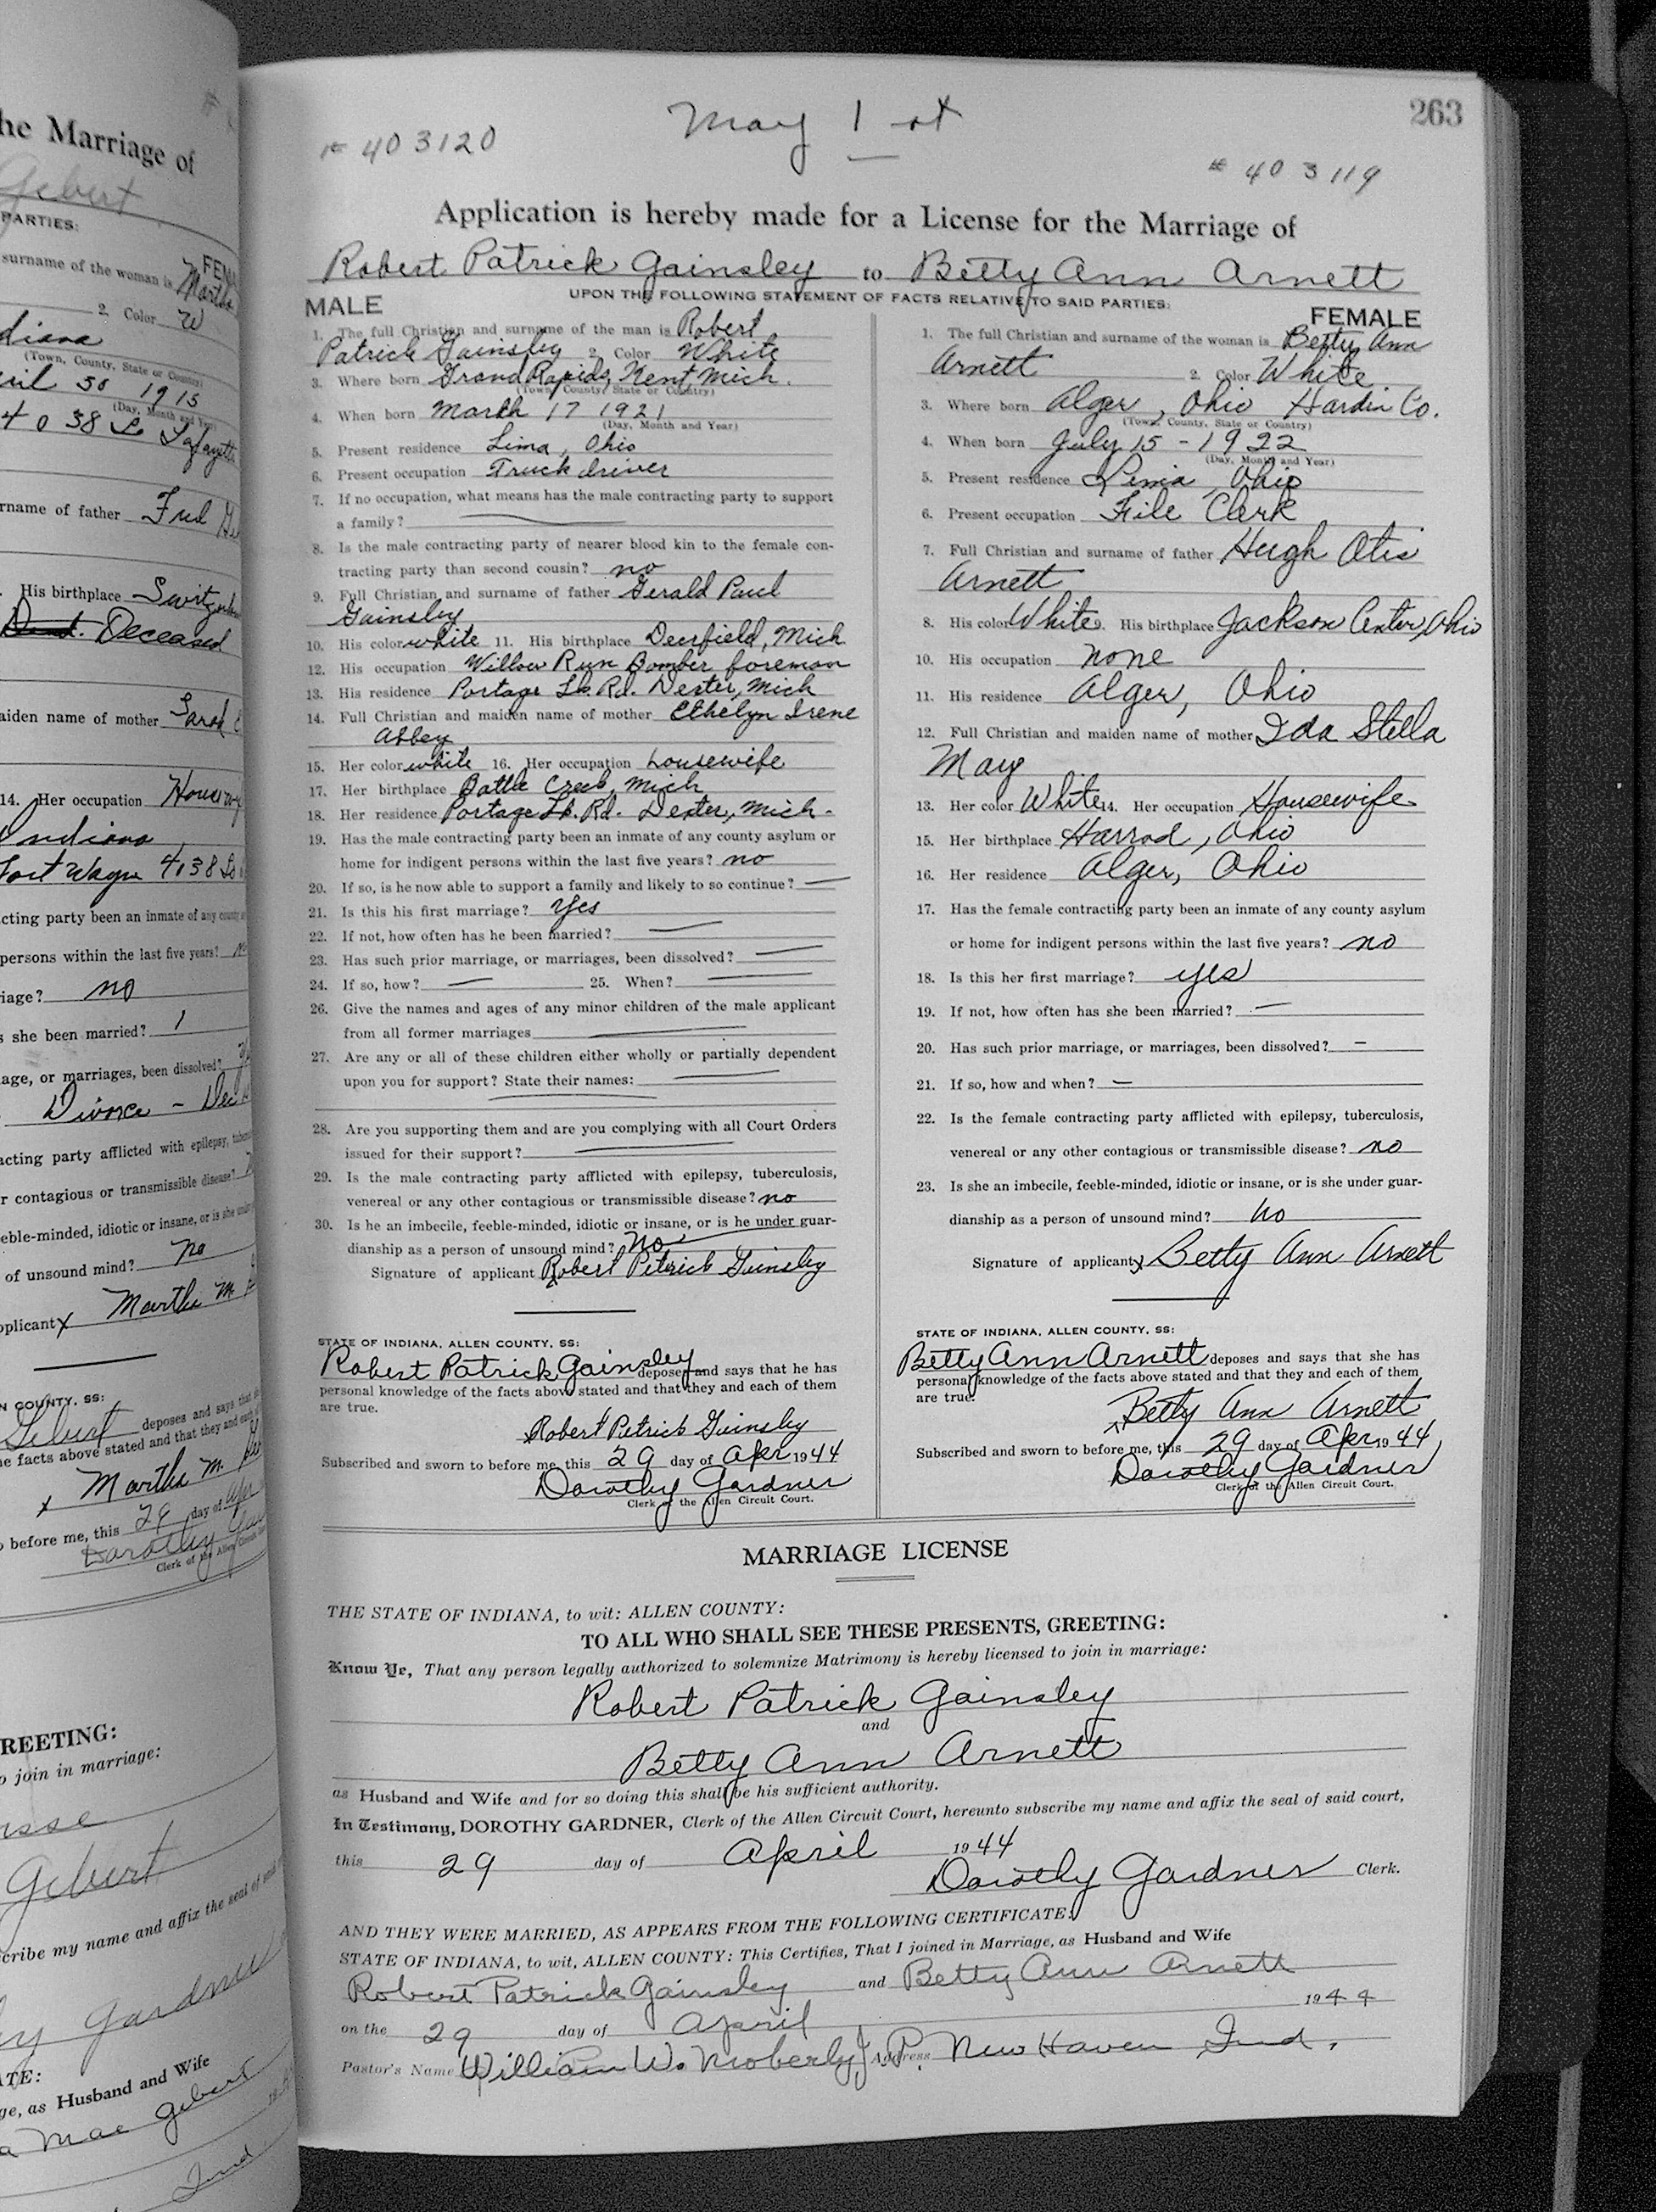 he Marriage of
Gebert
PARTIES:
surname of the woman is Martha
FEM
2. Color W
diana
(Town, County, State or Country)
ril 30 1915
(Day, Month and Year)
4038 So Lafayette
rname of father Fred
His birthplace
Deceased
aiden name of mother Sarah
14. Her occupation
Indiana
Fort Wayne 4038 So
cting party been an inmate of any county
persons within the last five years?
iage? no
s she been married? 1
age, or marriages, been dissolved?
Divorce - Dec
acting party afflicted with epilepsy,
r contagious or transmissible disease?
eeble-minded, idiotic or insane, or is she under
of unsound mind? no
pplicant x Martha M
N COUNTY, SS:
Gebert deposes and says that
e facts above stated and that they and each
x Martha M.
o before me, this 29 day of Apr
Dorothy
Clerk of the Allen
REETING:
o join in marriage:
Gebert
cribe my name and affix the seal of
Gardner
ATE:
ge, as Husband and Wife
a Mae Gebert
Ind
263
May 1 st
# 403120
# 403119
Application is hereby made for a License for the Marriage of
Robert Patrick Gainsley to Betty Ann Arnett
UPON THE FOLLOWING STATEMENT OF FACTS RELATIVE TO SAID PARTIES:
MALE
1. The full Christian and surname of the man is Robert
Patrick Gainsley 2. Color White
3. Where born Grand Rapids, Kent, Mich.
(Town, County, State or Country)
4. When born March 17 1921
(Day, Month and Year)
5. Present residence Lima, Ohio
6. Present occupation Truck driver
7. If no occupation, what means has the male contracting party to support
a family?
8. Is the male contracting party of nearer blood kin to the female con-
tracting party than second cousin? no
9. Full Christian and surname of father Gerald Paul
Gainsley
10. His color white 11. His birthplace Deerfield, Mich
12. His occupation Willow Run Bomber foreman
13. His residence Portage Lk. Rd. Dexter, Mich
14. Full Christian and maiden name of mother Ethelyn Irene
Abbey
15. Her color white 16. Her occupation housewife
17. Her birthplace Battle Creek, Mich
18. Her residence Portage Lk. Rd. Dexter, Mich-
19. Has the male contracting party been an inmate of any county asylum or
home for indigent persons within the last five years? no
20. If so, is he now able to support a family and likely to so continue? —
21. Is this his first marriage? yes
22. If not, how often has he been married? —
23. Has such prior marriage, or marriages, been dissolved? —
24. If so, how? — 25. When? —
26. Give the names and ages of any minor children of the male applicant
from all former marriages —
27. Are any or all of these children either wholly or partially dependent
upon you for support? State their names: —
28. Are you supporting them and are you complying with all Court Orders
issued for their support? —
29. Is the male contracting party afflicted with epilepsy, tuberculosis,
venereal or any other contagious or transmissible disease? no
30. Is he an imbecile, feeble-minded, idiotic or insane, or is he under guar-
dianship as a person of unsound mind? No
Signature of applicant Robert Patrick Gainsley
STATE OF INDIANA, ALLEN COUNTY, SS:
Robert Patrick Gainsley deposes and says that he has
personal knowledge of the facts above stated and that they and each of them
are true.
Robert Patrick Gainsley
Subscribed and sworn to before me, this 29 day of Apr 1944
Dorothy Gardner
Clerk of the Allen Circuit Court.
FEMALE
1. The full Christian and surname of the woman is Betty Ann
Arnett 2. Color White
3. Where born Alger, Ohio Hardin Co.
(Town, County, State or Country)
4. When born July 15 - 1922
(Day, Month and Year)
5. Present residence Lima, Ohio
6. Present occupation File Clerk
7. Full Christian and surname of father Hugh Otis
Arnett
8. His color White 9. His birthplace Jackson Center, Ohio
10. His occupation none
11. His residence Alger, Ohio
12. Full Christian and maiden name of mother Ida Stella
May
13. Her color White 14. Her occupation Housewife
15. Her birthplace Harrod, Ohio
16. Her residence Alger, Ohio
17. Has the female contracting party been an inmate of any county asylum
or home for indigent persons within the last five years? no
18. Is this her first marriage? yes
19. If not, how often has she been married? —
20. Has such prior marriage, or marriages, been dissolved? —
21. If so, how and when? —
22. Is the female contracting party afflicted with epilepsy, tuberculosis,
venereal or any other contagious or transmissible disease? no
23. Is she an imbecile, feeble-minded, idiotic or insane, or is she under guar-
dianship as a person of unsound mind? no
Signature of applicant x Betty Ann Arnett
STATE OF INDIANA, ALLEN COUNTY, SS:
Betty Ann Arnett deposes and says that she has
personal knowledge of the facts above stated and that they and each of them
are true.
x Betty Ann Arnett
Subscribed and sworn to before me, this 29 day of Apr 1944
Dorothy Gardner
Clerk of the Allen Circuit Court.
MARRIAGE LICENSE
THE STATE OF INDIANA, to wit: ALLEN COUNTY:
TO ALL WHO SHALL SEE THESE PRESENTS, GREETING:
Know Ye, That any person legally authorized to solemnize Matrimony is hereby licensed to join in marriage:
Robert Patrick Gainsley
and
Betty Ann Arnett
as Husband and Wife and for so doing this shall be his sufficient authority.
In Testimony, DOROTHY GARDNER, Clerk of the Allen Circuit Court, hereunto subscribe my name and affix the seal of said court,
this 29 day of April 1944
Dorothy Gardner Clerk.
AND THEY WERE MARRIED, AS APPEARS FROM THE FOLLOWING CERTIFICATE:
STATE OF INDIANA, to wit, ALLEN COUNTY: This Certifies, That I joined in Marriage, as Husband and Wife
Robert Patrick Gainsley and Betty Ann Arnett
on the 29 day of April 1944
Pastor's Name William W. Moberly J. P. Address New Haven Ind.